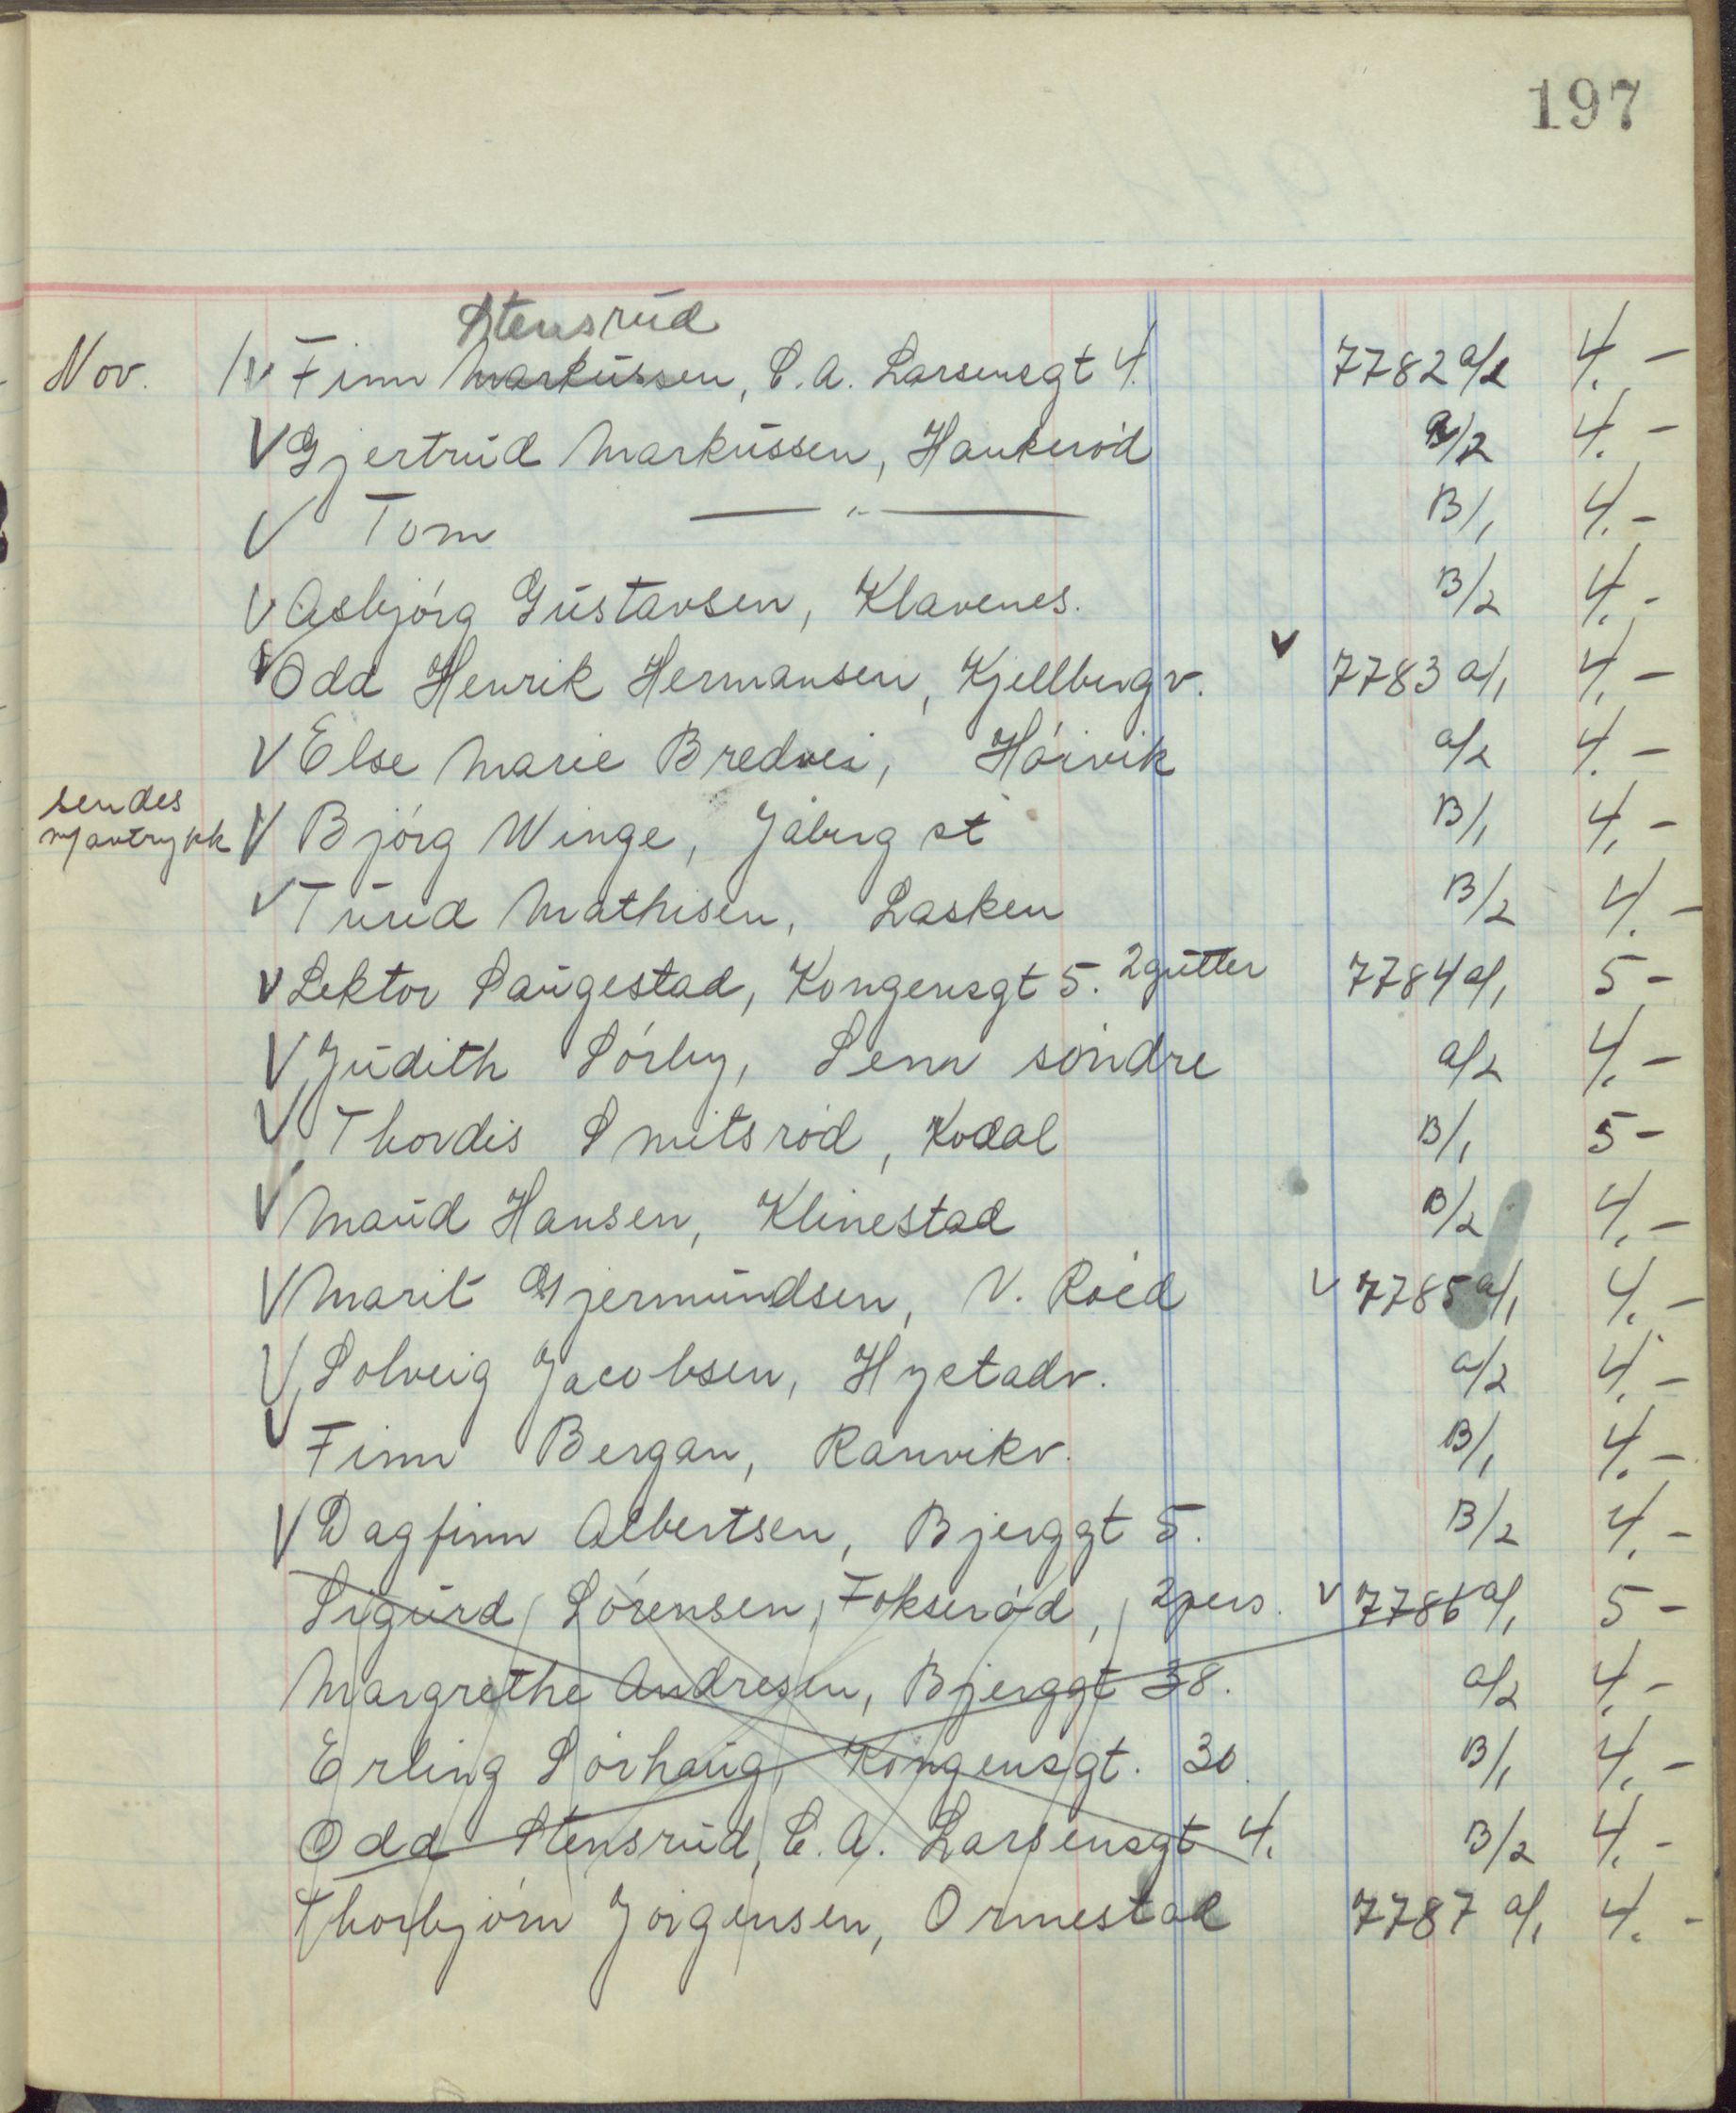 197
Stensrud
Nov. 1 V Finn Markussen, C. A. Larsensgt 4. 7782 a/2 4. -
V Gjertrud Markussen, Haukerød a/2 4. -
V Tom — " — B/1 4. -
V Asbjørg Gustavsen, Klavenes. B/2 4. -
V Odd Henrik Hermansen, Kjellbergv. V 7783 a/1 4. -
V Else Marie Bredvei, Høivik a/2 4. -
sendes
m/avtrykk V Bjørg Winge, Jåberg st B/1 4. -
V Turid Mathisen, Lasken B/2 4. -
V Lektor Saugestad, Kongensgt 5. 2 gutter 7784 a/1 5 -
V Judith Sørby, Sem søndre a/2 4. -
V Thordis Smitsrød, Kodal B/1 5 -
V Maud Hansen, Klinestad B/2 4. -
V Marit Gjermundsen, V. Røed V 7785 a/1 4. -
V Solveig Jacobsen, Hystadv. a/2 4. -
V Finn Bergan, Ranvikv. B/1 4. -
V Dagfinn Albertsen, Bjerggt 5. B/2 4. -
Sigurd Sørensen, Fokserød, 2 pers. V 7786 a/1 5 -
Margrethe Andresen, Bjerggt 38. a/2 4. -
Erling Sørhaug, Kongensgt. 30. B/1 4. -
Odd Stensrud, C. A. Larsensgt 4. B/2 4. -
Thorbjørn Jørgensen, Ormestad 7787 a/1 4. -